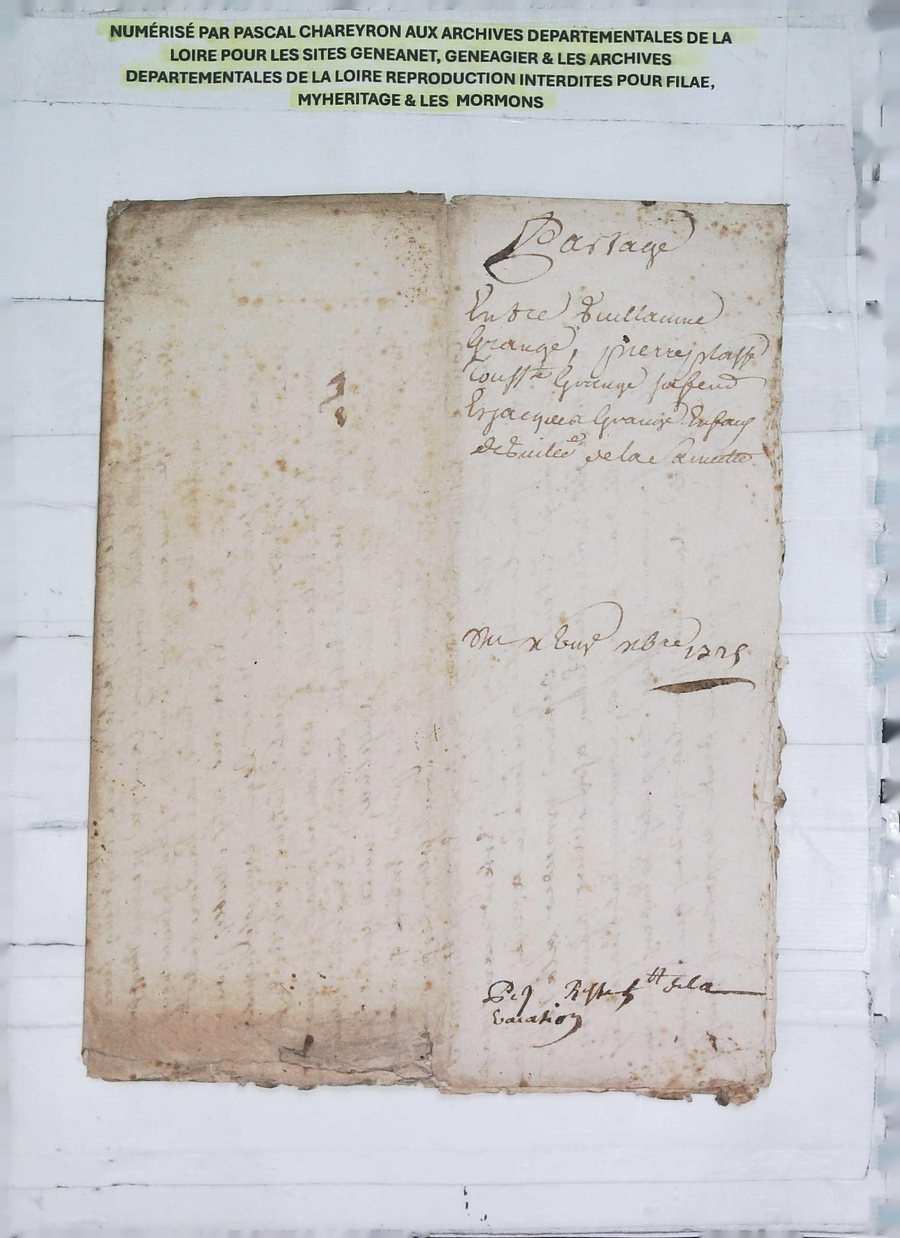 NUMÉRISÉ PAR PASCAL CHAREYRON AUX ARCHIVES DEPARTEMENTALES DE LA
LOIRE POUR LES SITES GENEANET, GENEAGIER & LES ARCHIVES
DEPARTEMENTALES DE LA LOIRE REPRODUCTION INTERDITES POUR FILAE,
MYHERITAGE & LES MORMONS
Partage
Entre Guillaume
Grange, pierre
Grange
Et jacques Grange Enfans
de la
Du 1725
Reste de la
vacation